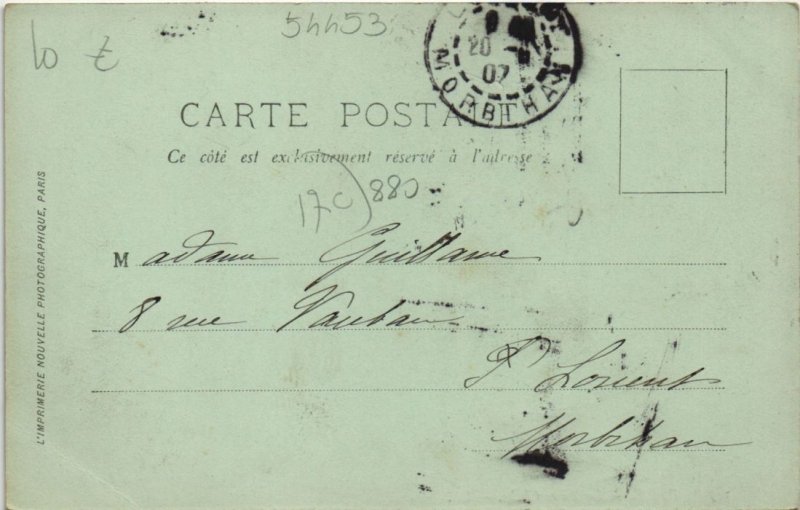 54453
10 €
20
07
MORBIHAN
CARTE POSTALE
Ce côté est exclusivement réservé à l'adresse
17C) 880
Madame Guillaume
8 rue Vauban
Lorient
Morbihan
L'IMPRIMERIE NOUVELLE PHOTOGRAPHIQUE, PARIS